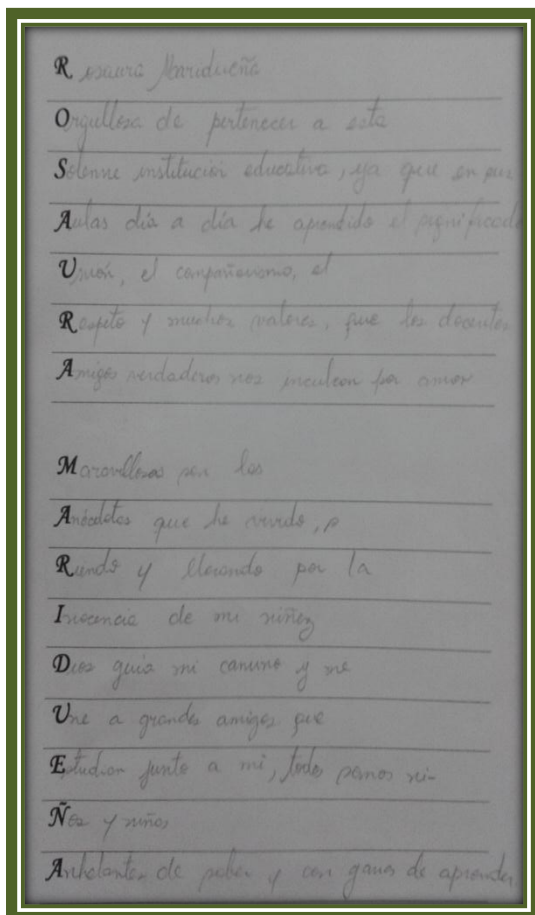 Rosaura Maridueña
Orgullosa de pertenecer a esta
Solemne institución educativa, ya que en sus
Aulas día a día he aprendido el significado
Unión, el compañerismo, el
Respeto y muchos valores, que los docentes
Amigos verdaderos nos inculcan por amor
Maravillosas son las
Anécdotas que he vivido,
Riendo y llorando por la
Inocencia de mi niñez
Dios guia mi camino y me
Une a grandes amigos que
Estudian junto a mi, todos somos ni-
Ños y niñas
Anhelantes de saber y con ganas de aprender